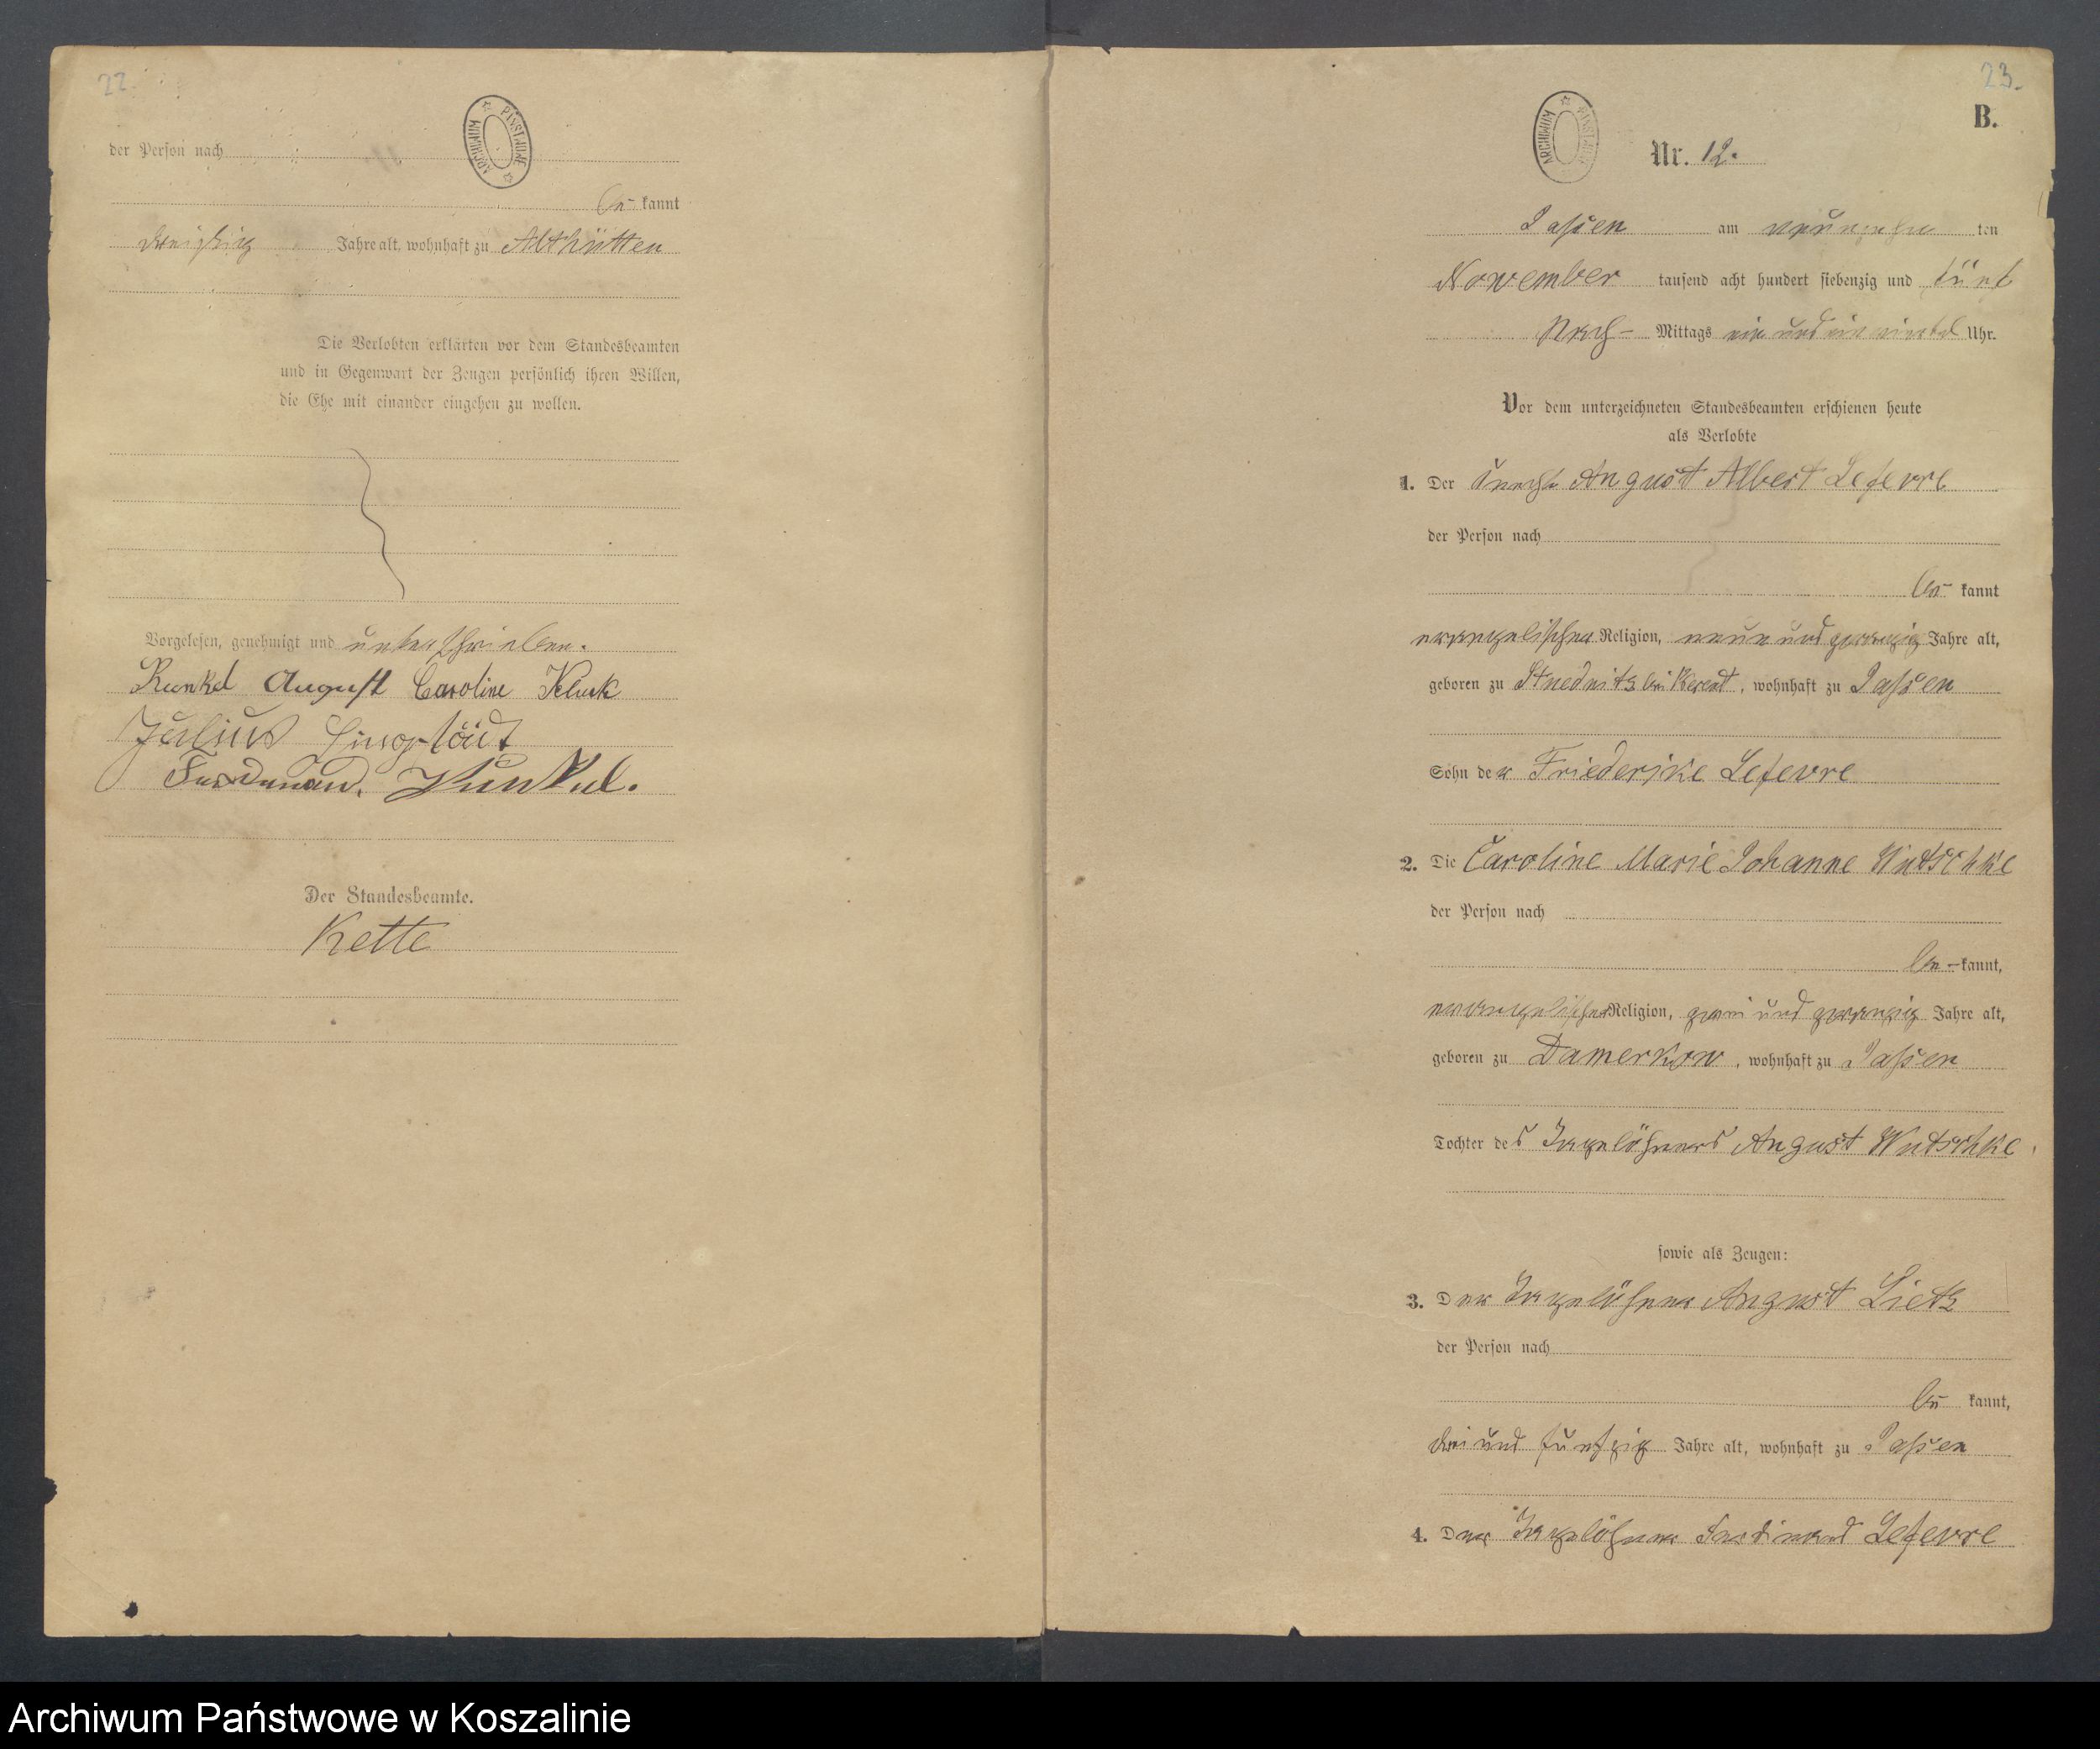 22.
ARCHIWUM PAŃSTWOWE
der Person nach
be- kannt
dreißig Jahre alt, wohnhaft zu Althütten
Die Verlobten erklärten vor dem Standesbeamten
und in Gegenwart der Zeugen persönlich ihren Willen,
die Ehe mit einander eingehen zu wollen.
Vorgelesen, genehmigt und unterschrieben.
Kunkel August Caroline Kluck
Julius
Ferdinand. Kunkel.
Der Standesbeamte.
Kette
23.
B.
ARCHIWUM PAŃSTWOWE
Nr. 12.
Jassen am neunzehn ten
November tausend acht hundert siebenzig und fünf
Nach- Mittags ein und ein viertel Uhr.
Vor dem unterzeichneten Standesbeamten erschienen heute
als Verlobte
1. Der Knecht August Albert Lefevre
der Person nach
be- kannt
evangelischer Religion, neun und zwanzig Jahre alt,
geboren zu Stüdnitz bei Berent, wohnhaft zu Jassen
Sohn der Friederike Lefevre
2. Die Caroline Marie Johanne Wutschke
der Person nach
be- kannt,
evangelischer Religion, zwei und zwanzig Jahre alt,
geboren zu Damerkow, wohnhaft zu Jassen
Tochter des Tagelöhners August Wutschke.
sowie als Zeugen:
3. Der Tagelöhner August Lietz
der Person nach
be- kannt,
drei und fünfzig Jahre alt, wohnhaft zu Jassen
4. Der Tagelöhner Ferdinand Lefevre
Archiwum Państwowe w Koszalinie